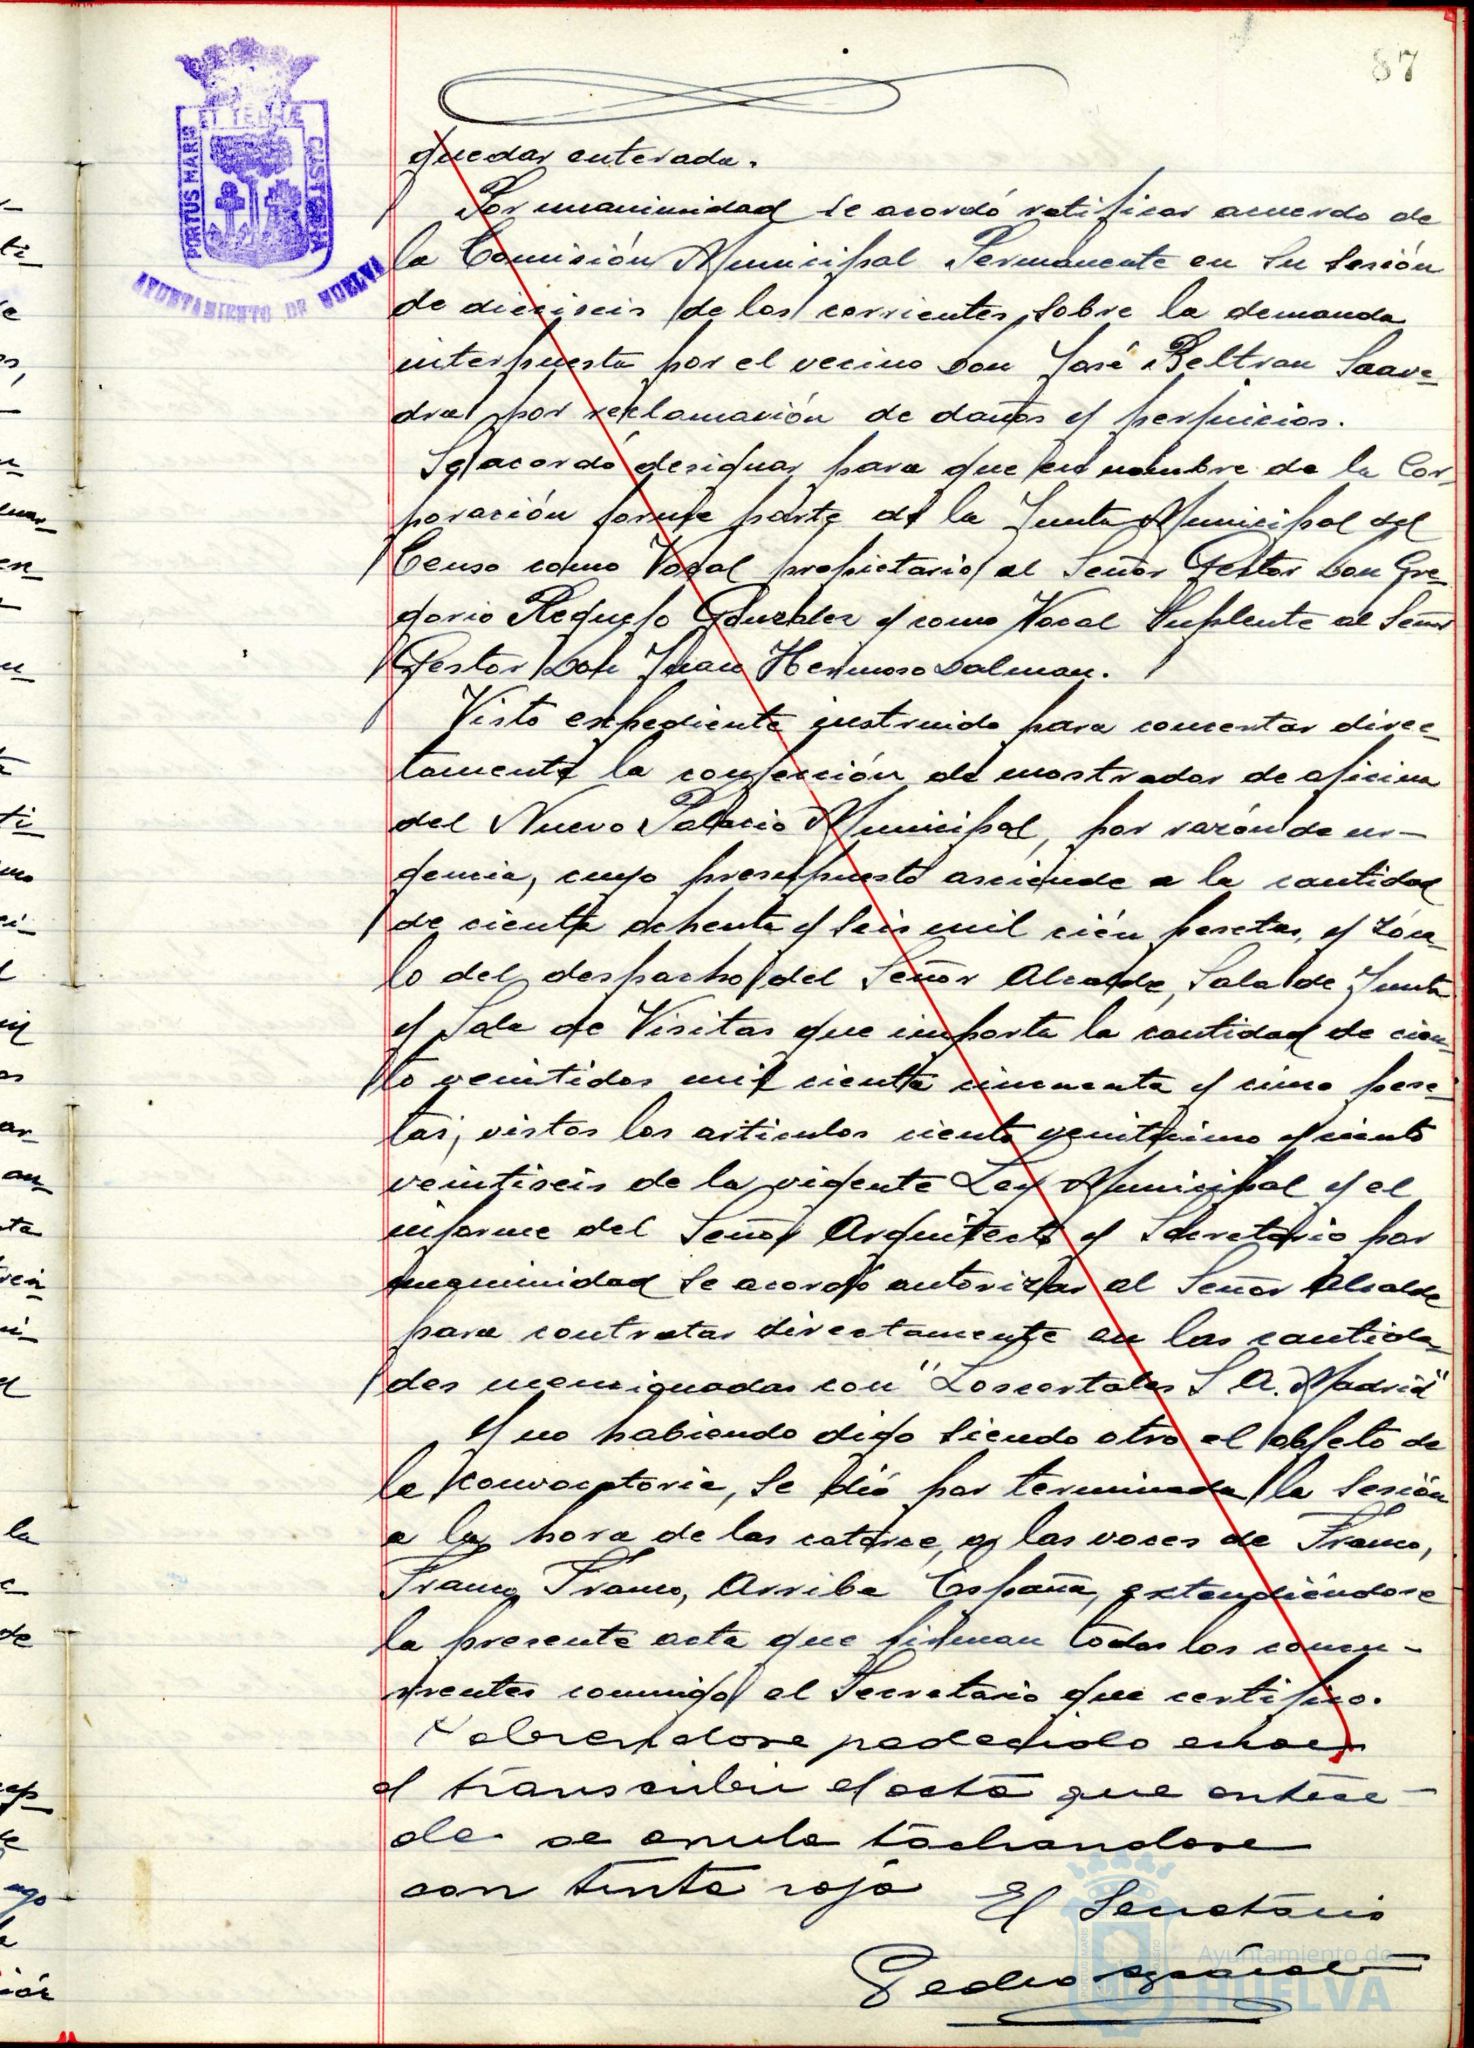 87
PORTUS MARIS ET TERRÆ CUSTODIA
AYUNTAMIENTO DE HUELVA
quedar enterada.
Por unanimidad se acordó ratificar acuerdo de
la Comisión Municipal Permanente en su sesión
de dieciseis de los corrientes, sobre la demanda
interpuesta por el vecino Don José Beltran Saave-
dra por reclamación de daños y perjuicios.
Se acordó designar para que en nombre de la Cor-
poración forme parte de la Junta Municipal del
Censo como Vocal propietario al Señor Gestor Don Gre-
gorio Requejo Gonzalez y como Vocal Suplente al Señor
Gestor Don Juan Hermoso Dalman.
Visto expediente instruido para concertar direc-
tamente la confección de mostrador de oficina
del Nuevo Palacio Municipal, por razón de ur-
gencia, cuyo presupuesto asciende a la cantidad
de ciento ochenta y seis mil cién pesetas, y zóca-
lo del despacho del Señor Alcalde, Sala de Junta
y Sala de Visitas que importa la cantidad de cien-
to veintidos mil ciento cincuenta y cinco pese-
tas, vistos los articulos ciento veinticinco y ciento
veintiseis de la vigente Ley Municipal y el
informe del Señor Arquitecto y Secretario por
unanimidad se acordó autorizar al Señor Alcalde
para contratar directamente en las cantida-
des mencionadas con "Loscertales S. A. Madrid"
Y no habiendo digo siendo otro el objeto de
la convocatoria, se dió por terminada la sesión
a la hora de las catorce, a las voces de Franco,
Franco, Franco, Arriba España, extendiéndose
la presente acta que firman todos los concu-
rrentes conmigo el Secretario que certifico.
Habiendose padecido error
al transcribir el acta que antece-
de se anula tachandose
con tinta roja El Secretario
Pedro
Ayuntamiento de
HUELVA